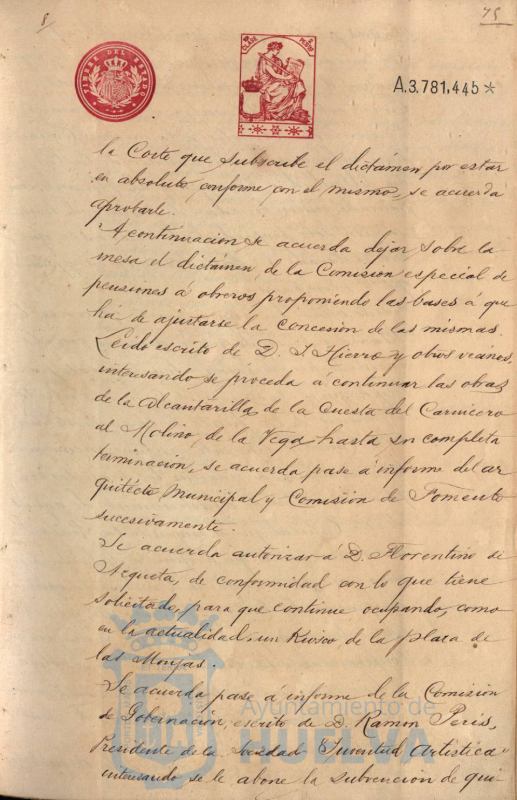 8
75
TIMBRE DEL ESTADO
A.3.781,445*
la Corte que subscribe el dictámen por estar
en absoluto conforme con el mismo, se acuerda
aprobarle.
A continuación se acuerda dejar sobre la
mesa el dictámen de la Comisión especial de
pensiones á obreros proponiendo las bases á que
há de ajustarse la concesión de las mismas.
Leido escrito de D. J. Hierro y otros vecinos,
interesando se proceda á continuar las obras
de la Alcantarilla, de la Cuesta del Carnicero
al Molino de la Vega hasta su completa
terminación, se acuerda pase á informe del ar
quitecto Municipal y Comisión de Fomento
sucesivamente.
Se acuerda autorizar á D. Florentino de
Azqueta, de conformidad con lo que tiene
solicitado, para que continue ocupando, como
en la actualidad, un Kiosco de la plaza de
las Monjas.
Se acuerda pase á informe de la Comisión
de Gobernación, escrito de D. Ramón Peris,
Presidente de la Sociedad "Juventud Artística"
interesando se le abone la subvención de qui-
Ayuntamiento de
HUELVA